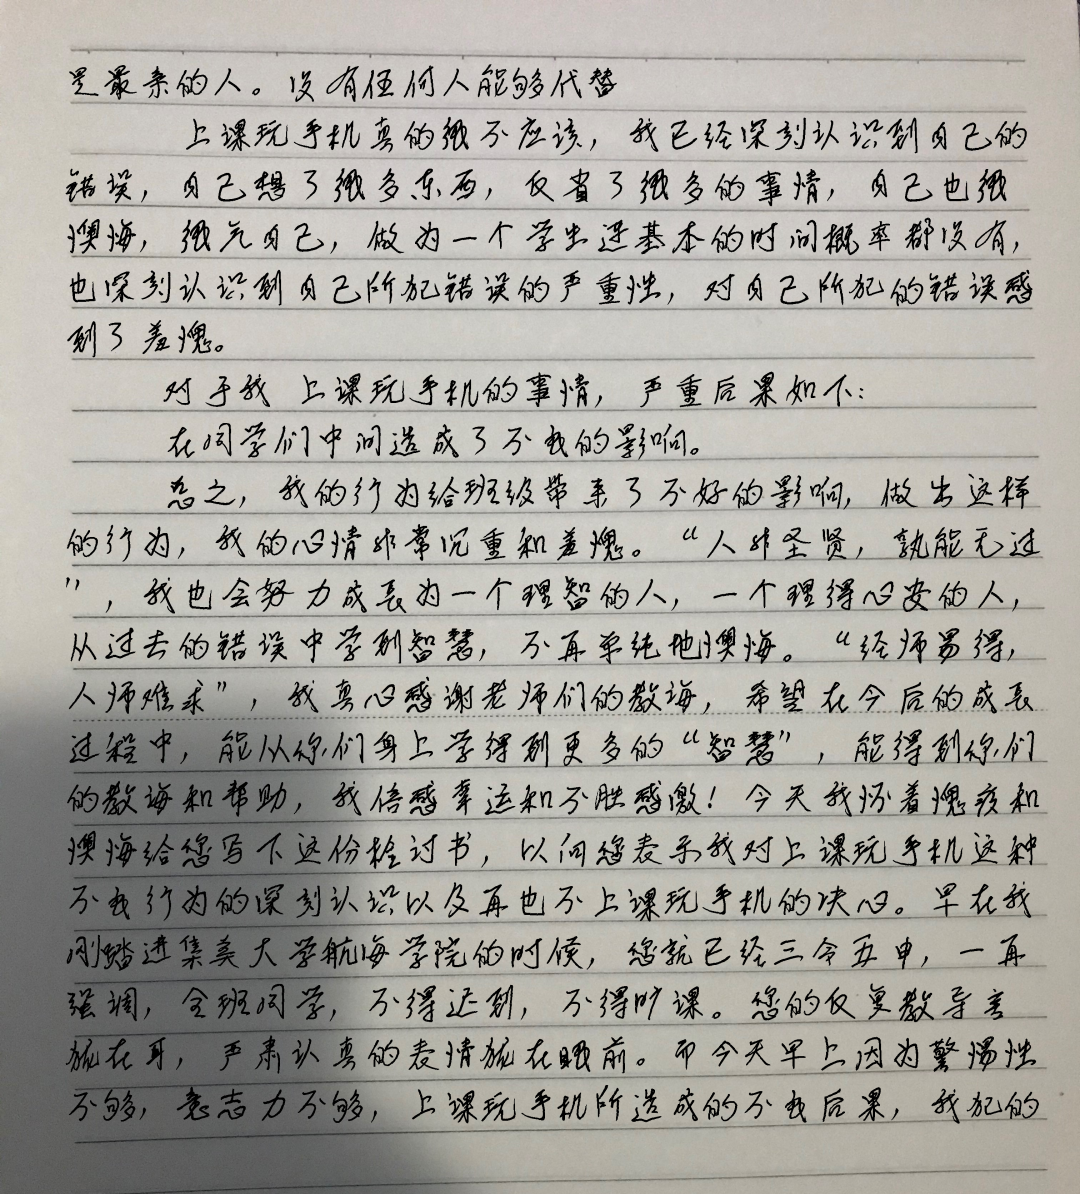 是最亲的人。没有任何人能够代替
上课玩手机真的很不应该，我已经深刻认识到自己的
错误，自己想了很多东西，反省了很多的事情，自己也很
懊悔，很气自己，做为一个学生连基本的时间概率都没有，
也深刻认识到自己所犯错误的严重性，对自己所犯的错误感
到了羞愧。
对于我上课玩手机的事情，严重后果如下：
在同学们中间造成了不良的影响。
总之，我的行为给班级带来了不好的影响，做出这样
的行为，我的心情非常沉重和羞愧。“人非圣贤，孰能无过
”，我也会努力成长为一个理智的人，一个理得心安的人，
从过去的错误中学到智慧，不再单纯地懊悔。“经师易得，
人师难求”，我真心感谢老师们的教诲，希望在今后的成长
过程中，能从你们身上学得到更多的“智慧”，能得到你们
的教诲和帮助，我倍感幸运和不胜感激！今天我怀着愧疚和
懊悔给您写下这份检讨书，以向您表示我对上课玩手机这种
不良行为的深刻认识以及再也不上课玩手机的决心。早在我
刚踏进集美大学航海学院的时候，您就已经三令五申，一再
强调，全班同学，不得迟到，不得旷课。您的反复教导言
犹在耳，严肃认真的表情犹在眼前。而今天早上因为警惕性
不够，意志力不够，上课玩手机所造成的不良后果，我犯的